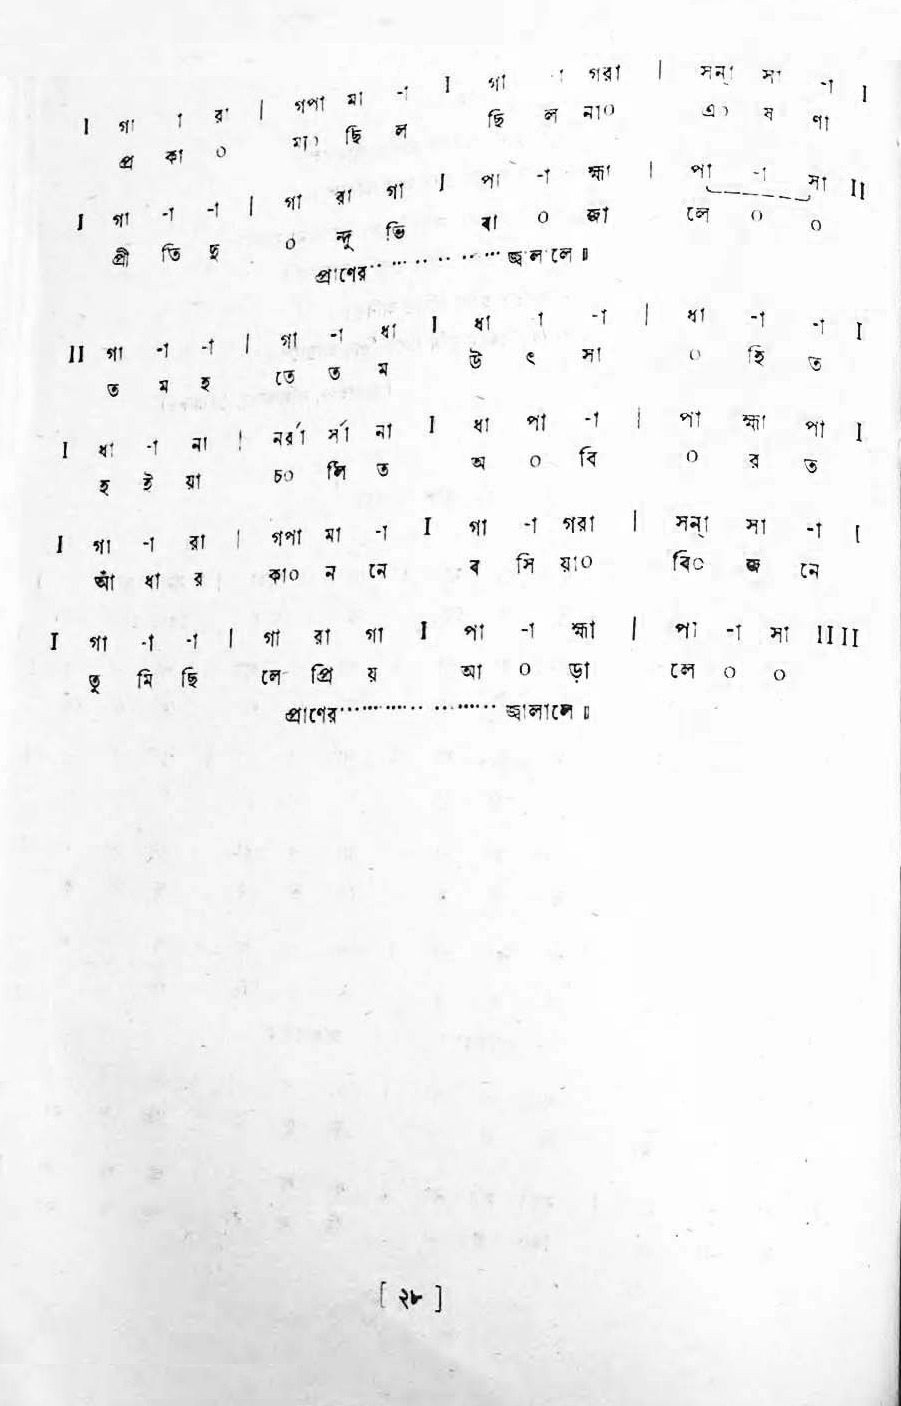 I গা া রা | গপা মা -া I গা -া গরা | সন্া সা -া I
প্র কা ০ মা০ ছি ল ছি ল না০ এ০ ষ ণা
I গা -া -া | গা রা গা I পা -া হ্মা | পা -া সা II
প্রী তি ছ ০ ন্দু ভি বা ০ জা লে ০ ০
প্রাণের·················· জ্বললে॥
II গা -া -া | গা -া ধা I ধা -া -া | ধা -া -া I
ত ম হ তে ত ম উ ৎ সা ০ হি ত
I ধা -া না | নর্রা র্সা না I ধা পা -া | পা হ্মা পা I
হ ই য়া চ০ লি ত অ ০ বি ০ র ত
I গা -া রা | গপা মা -া I গা -া গরা | সন্া সা -া I
আঁ ধা র কা০ ন নে ব সি য়া০ বি০ জ নে
I গা -া -া | গা রা গা I পা -া হ্মা | পা -া সা II II
তু মি ছি লে প্রি য় আ ০ ড়া লে ০ ০
প্রাণের························ জ্বালালে॥
[ ২৮ ]